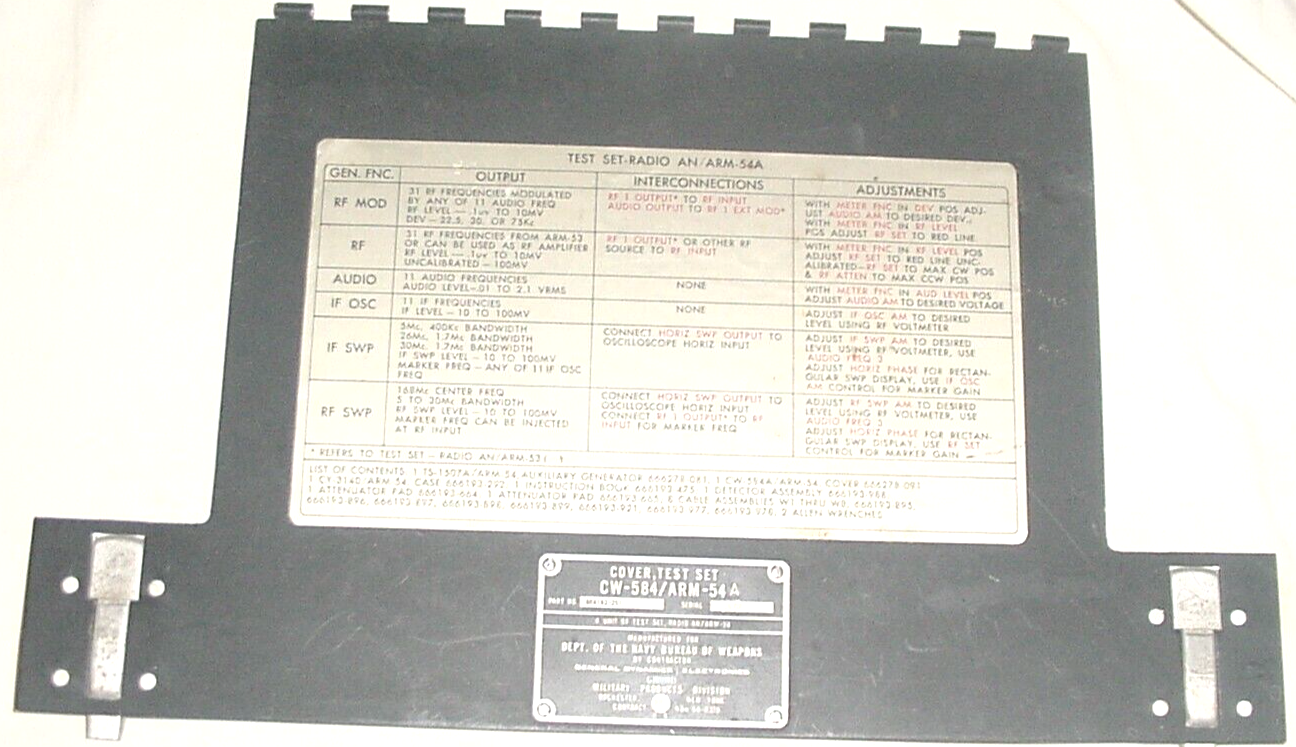 TEST SET-RADIO AN/ARM-54A
GEN. FNC. OUTPUT INTERCONNECTIONS ADJUSTMENTS
RF MOD
31 RF FREQUENCIES MODULATED
BY ANY OF 11 AUDIO FREQ
RF LEVEL — .1uv TO 10MV
DEV — 22.5, 30, OR 75Kc
RF 1 OUTPUT* TO RF INPUT
AUDIO OUTPUT TO RF 1 EXT MOD*
WITH METER FNC IN DEV POS ADJ-
UST AUDIO AM TO DESIRED DEV.
WITH METER FNC IN RF LEVEL
POS ADJUST RF SET TO RED LINE
RF
31 RF FREQUENCIES FROM ARM-53
OR CAN BE USED AS RF AMPLIFIER
RF LEVEL — .1uv TO 10MV
UNCALIBRATED — 100MV
RF 1 OUTPUT* OR OTHER RF
SOURCE TO RF INPUT
WITH METER FNC IN RF LEVEL POS
ADJUST RF SET TO RED LINE UNC-
ALIBRATED—RF SET TO MAX CW POS
& RF ATTEN TO MAX CCW POS
AUDIO
11 AUDIO FREQUENCIES
AUDIO LEVEL-.01 TO 2.1 VRMS
NONE
WITH METER FNC IN AUD LEVEL POS
ADJUST AUDIO AM TO DESIRED VOLTAGE
IF OSC
11 IF FREQUENCIES
IF LEVEL — 10 TO 100MV
NONE
ADJUST IF OSC AM TO DESIRED
LEVEL USING RF VOLTMETER
IF SWP
5Mc, 400Kc BANDWIDTH
26Mc, 1.7Mc BANDWIDTH
30Mc, 1.7Mc BANDWIDTH
IF SWP LEVEL — 10 TO 100MV
MARKER FREQ — ANY OF 11 IF OSC
FREQ
CONNECT HORIZ SWP OUTPUT TO
OSCILLOSCOPE HORIZ INPUT
ADJUST IF SWP AM TO DESIRED
LEVEL USING RF VOLTMETER, USE
AUDIO FREQ 3
ADJUST HORIZ PHASE FOR RECTAN-
GULAR SWP DISPLAY, USE IF OSC
AM CONTROL FOR MARKER GAIN
RF SWP
168Mc CENTER FREQ
5 TO 20Mc BANDWIDTH
RF SWP LEVEL — 10 TO 100MV
MARKER FREQ CAN BE INJECTED
AT RF INPUT
CONNECT HORIZ SWP OUTPUT TO
OSCILLOSCOPE HORIZ INPUT
CONNECT RF 1 OUTPUT* TO RF
INPUT FOR MARKER FREQ
ADJUST RF SWP AM TO DESIRED
LEVEL USING RF VOLTMETER, USE
AUDIO FREQ 3
ADJUST HORIZ PHASE FOR RECTAN-
GULAR SWP DISPLAY, USE RF SET
CONTROL FOR MARKER GAIN
* REFERS TO TEST SET — RADIO AN/ARM-53
LIST OF CONTENTS 1 TS-1507A/ARM-54 AUXILIARY GENERATOR 666278-091, 1 CW-584A/ARM-54 COVER 666278-091
1 CY-3140/ARM-54 CASE 666193-292, 1 INSTRUCTION BOOK 666192-475, 1 DETECTOR ASSEMBLY 666193-968
1 ATTENUATOR PAD 666193-664, 1 ATTENUATOR PAD 666193-665, 8 CABLE ASSEMBLIES W1 THRU W8, 666193-895,
666193-896, 666193-897, 666193-898, 666193-899, 666193-921, 666193-977, 666193-978, 2 ALLEN WRENCHES
COVER, TEST SET
CW-584/ARM-54 A
PART NO. SERIAL
A UNIT OF TEST SET, RADIO AN/ARM-54
MANUFACTURED FOR
DEPT. OF THE NAVY BUREAU OF WEAPONS
BY CONTRACTOR
GENERAL DYNAMICS | ELECTRONICS
MILITARY PRODUCTS DIVISION
ROCHESTER, NEW YORK
CONTRACT